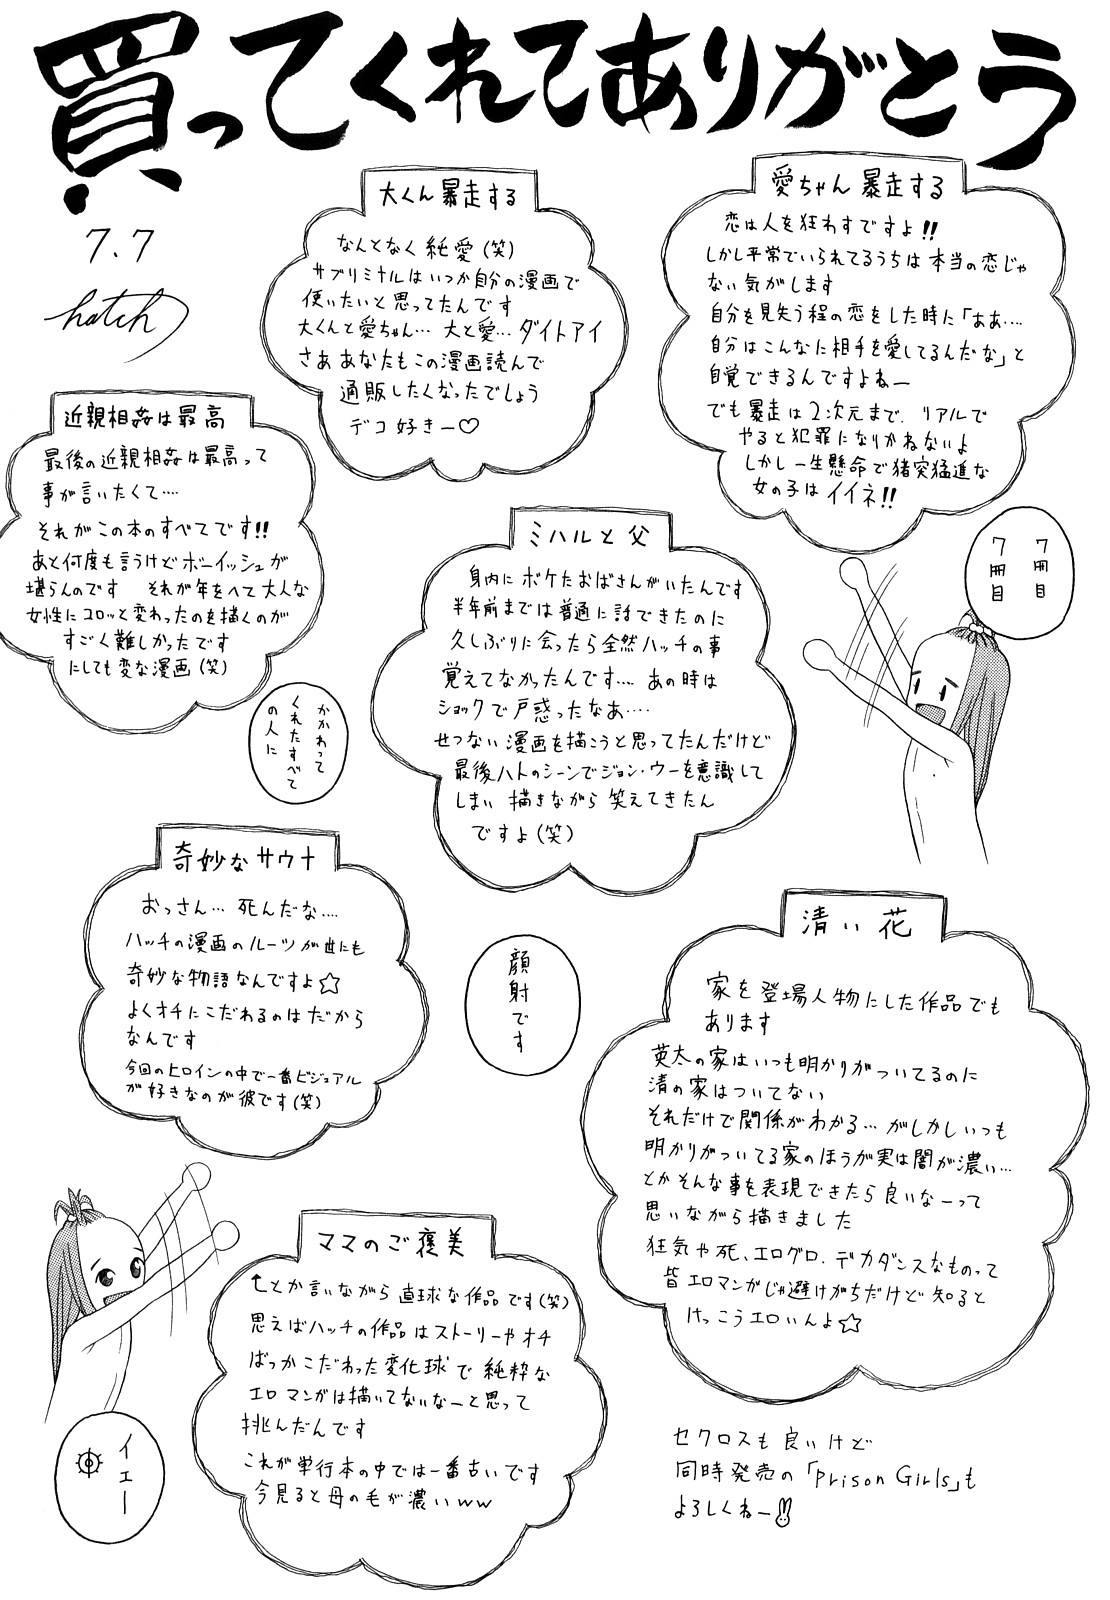 買ってくれてありがとう
7.7
hatch
愛ちゃん暴走する
恋は人を狂わすですよ!!
しかし平常でいられてるうちは本当の恋じゃ
ない気がします
自分を見失う程の恋をした時に「ああ....
自分はこんなに相手を愛してるんだな」と
自覚できるんですよねー
でも暴走は2次元まで、リアルで
やると犯罪になりかねないよ
しかし一生懸命で猪突猛進な
女の子はイイネ!!
大くん暴走する
なんとなく純愛(笑)
サブリミナルはいつか自分の漫画で
使いたいと思ってたんです
大くんと愛ちゃん…大と愛…ダイトアイ
さああなたもこの漫画読んで
通販したくなったでしょう
デコ好きー♡
近親相姦は最高
最後の近親相姦は最高って
事が言いたくて....
それがこの本のすべてです!!
あと何度も言うけどボーイッシュが
堪らんのです それが年をへて大人な
女性にコロッと変わったのを描くのが
すごく難しかったです
にしても変な漫画(笑)
7冊目
7冊目
ミハルと父
身内にボケたおばさんがいたんです
半年前までは普通に話できたのに
久しぶりに会ったら全然ハッチの事
覚えてなかったんです.... あの時は
ショックで戸惑ったなあ....
せつない漫画を描こうと思ってたんだけど
最後ハトのシーンでジョン・ウーを意識して
しまい 描きながら笑えてきたん
ですよ(笑)
かかわって
くれたすべて
の人に
奇妙なサウナ
おっさん… 死んだな....
ハッチの漫画のルーツが世にも
奇妙な物語なんですよ☆
よくオチにこだわるのはだから
なんです
今回のヒロインの中で一番ビジュアル
が好きなのが彼です(笑)
顔射です
清い花
家を登場人物にした作品でも
あります
英太の家はいつも明かりがついてるのに
清の家はついてない
それだけで関係がわかる…がしかしいつも
明かりがついてる家のほうが実は闇が濃い…
とかそんな事を表現できたら良いなーって
思いながら描きました
狂気や死、エログロ、デカダンスなものって
皆エロマンガじゃ避けがちだけど知ると
けっこうエロいんよ☆
ママのご褒美
↑とか言いながら直球な作品です(笑)
思えばハッチの作品はストーリーやオチ
ばっかこだわった変化球で純粋な
エロマンガは描いてないなーと思って
挑んだんです
これが単行本の中では一番古いです
今見ると母の毛が濃いww
イエー
セクロスも良いけど
同時発売の「Prison Girls」も
よろしくねー